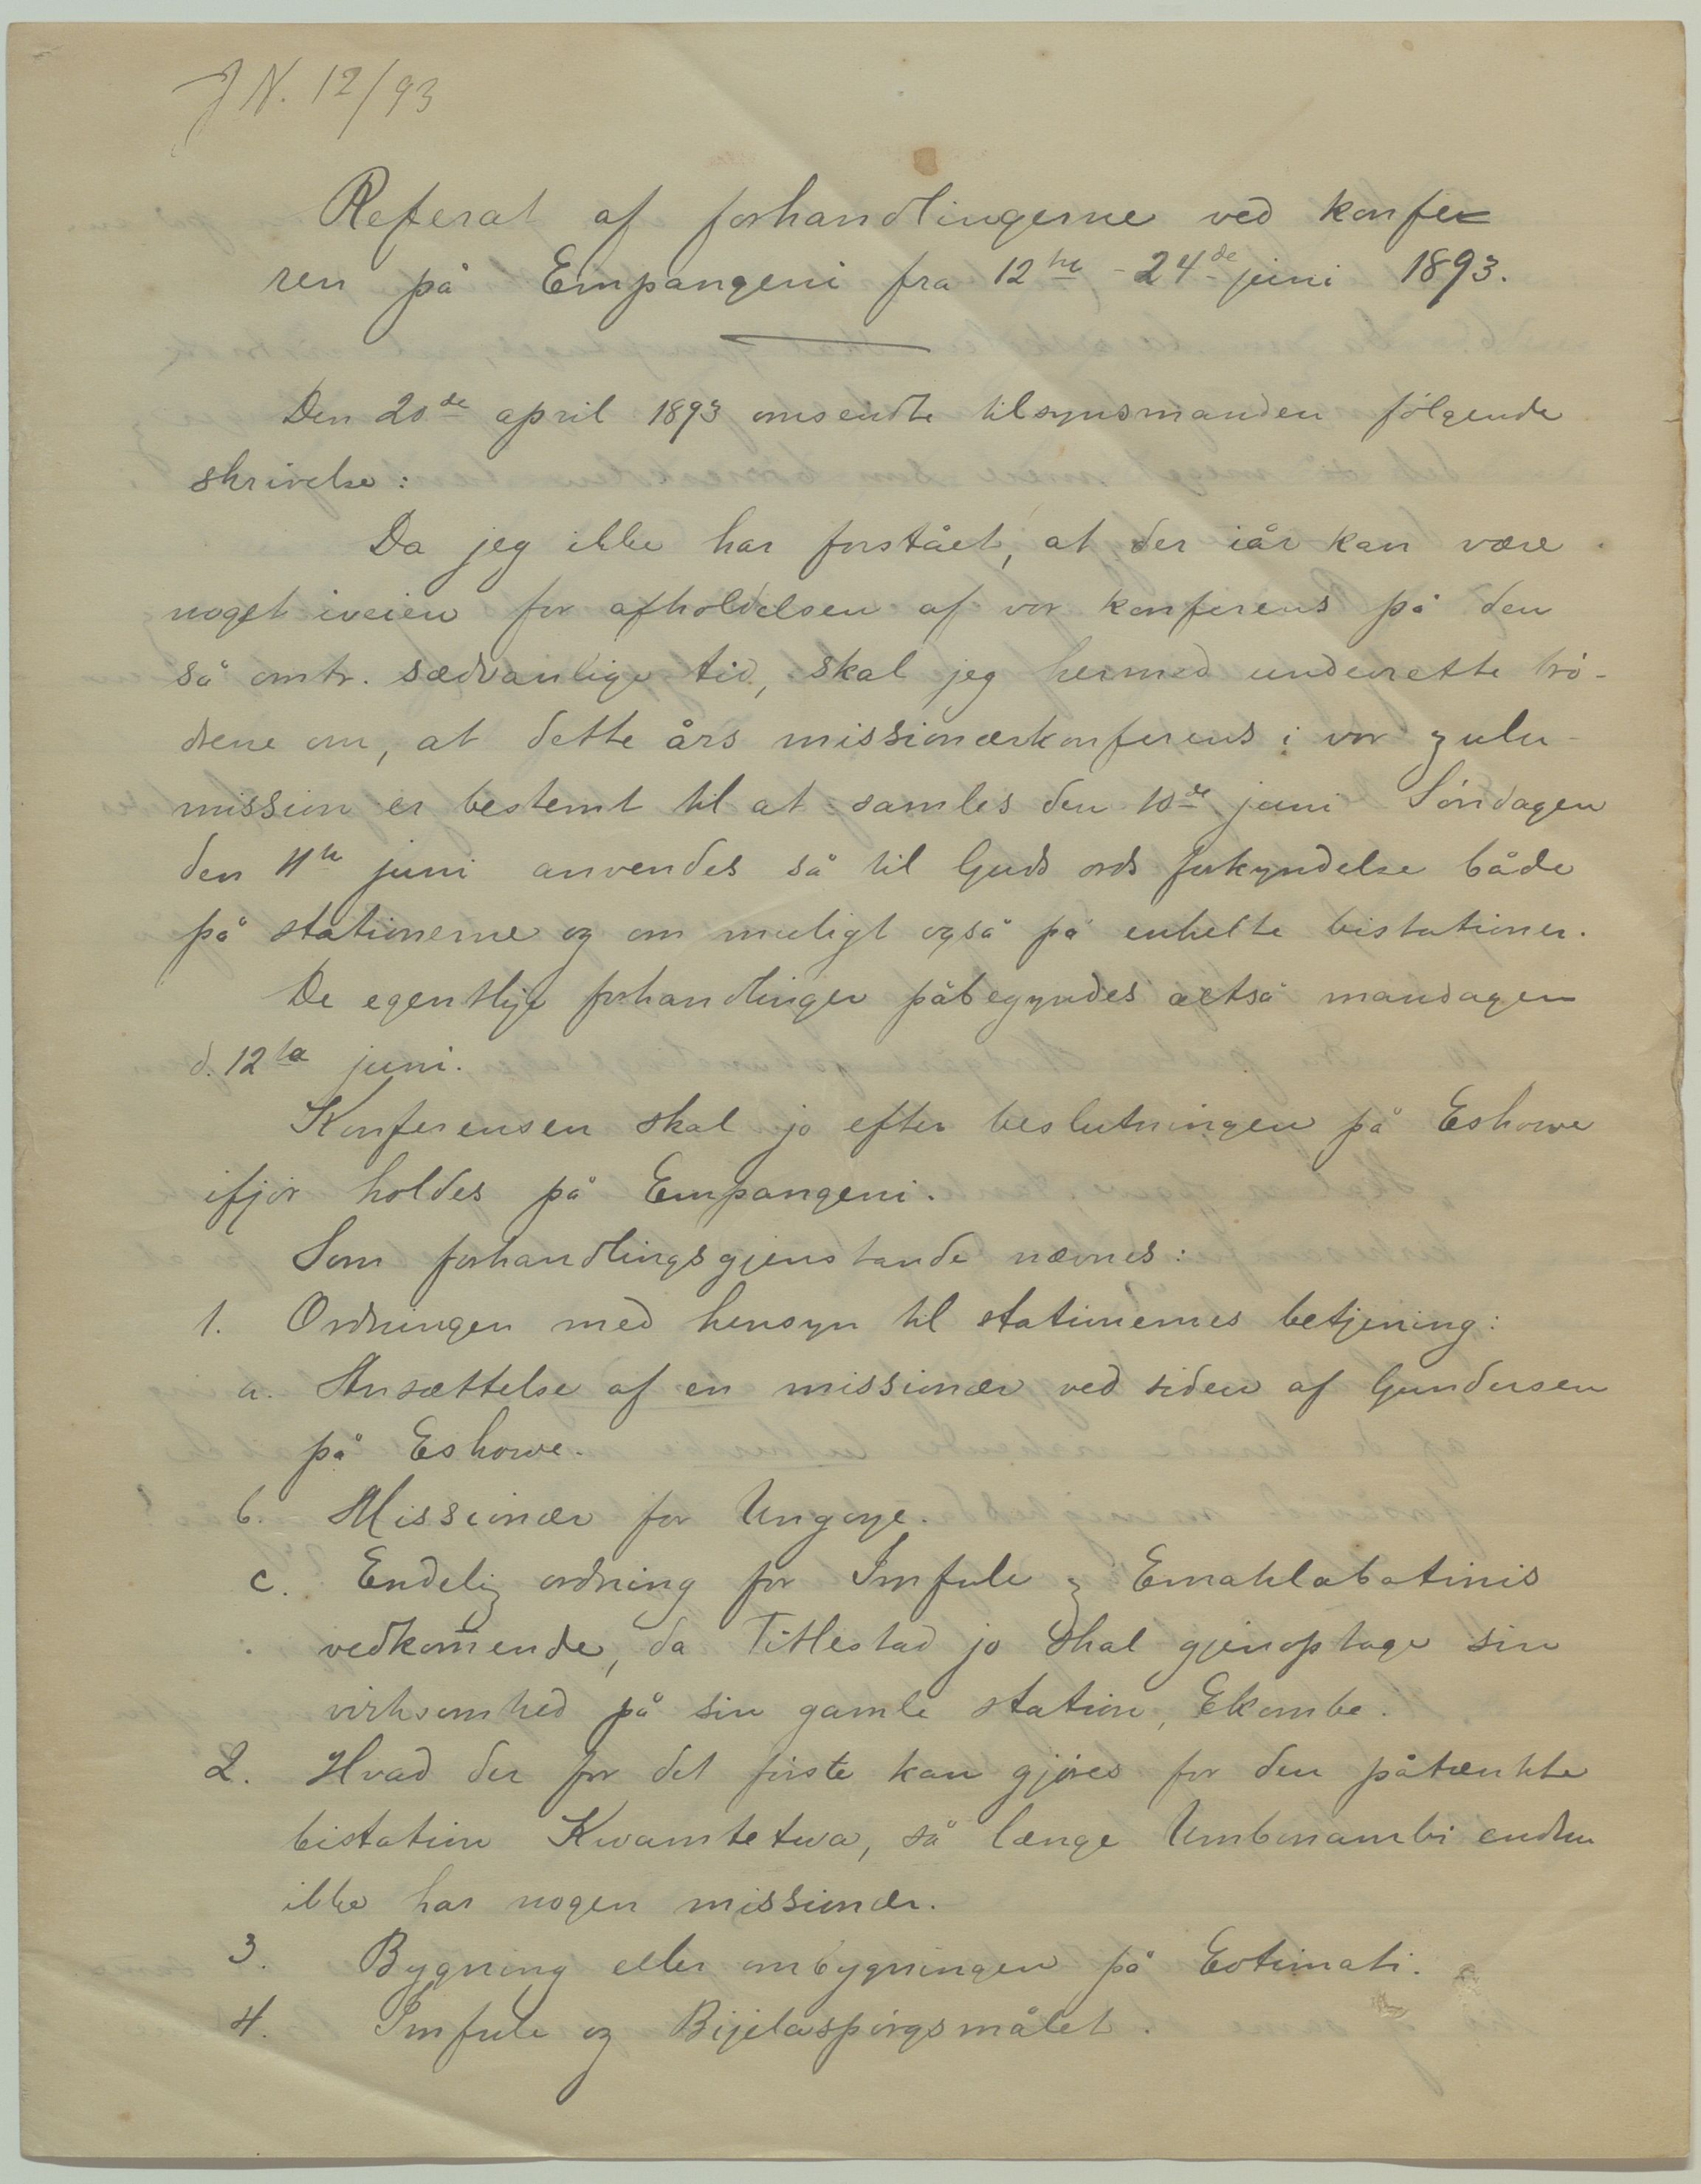 J N. 12/93
Referat af forhandlingerne ved konfe-
ren på Empangeni fra 12te - 24de juni 1893.
Den 20de april 1893 omsendte tilsynsmanden følgende
skrivelse:
Da jeg ikke har forstået, at der iår kan være
noget iveien for afholdelsen af vor konferens på den
så omtr. sædvanlige tid, skal jeg hermed underrette brø-
drene om, at dette års missionærkonferens i vor zulu-
mission er bestemt til at samles den 10de juni Søndagen
den 11te juni anvendes så til Guds ords forkyndelse både
på stationerne og om muligt også på enkelte bistationer.
De egentlige forhandlinger påbegyndes altså mandagen
d. 12te juni.
Konferensen skal jo efter beslutningen på Eshowe
ifjor holdes på Empangeni.
Som forhandlingsgjenstande nævnes:
1. Ordningen med hensyn til stationernes betjening:
a. Ansættelse af en missionær ved siden af Gundersen
på Eshowe.
b. Missionær for Ungoye.
c. Endelig ordning for Imfule og Emahlabatinis
vedkomende, da Titlestad jo skal gjenoptage sin
virksomhed på sin gamle station, Ekombe.
2. Hvad der for det første kan gjøres for den påtænkte
bistation Kwamtetwa, så længe Umbonambi endnu
ikke har nogen missionær.
3. Bygning eller ombygningen på Eotimati.
4. Imfule og Bijelaspørgsmålet.